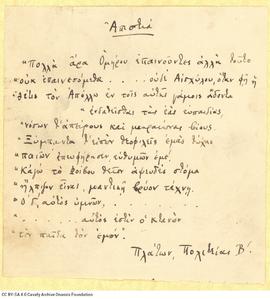 Απιστία
"Πολλά άρα Ομήρου επαινούντες αλλά τούτο
"ουκ επαινεσόμεθα .... ουδέ Αισχύλου, όταν φη η
"Θέτις τον Απόλλω εν τοις αυτής γάμοις άδοντα
"ενδατείσθαι τας εάς ευπαιδίας,
"νόσων τ' απείρους και μακραίωνας βίους.
"Ξύμπαντα τ' ειπών θεοφιλείς εμάς τύχας
"παιών' επευφήμησεν, ευθυμών εμέ.
"Καγώ το Φοίβου θείον αψευδές στόμα
"ήλπιζον είναι, μαντική βρύον τέχνη.
"Ο δ', αυτός υμνών, ......
"..... ..... αυτός εστιν ο κτανών
"τον παίδα τον εμόν".
Πλάτων, Πολιτείας Β'.
CC BY-SA 4.0 Cavafy Archive Onassis Foundation